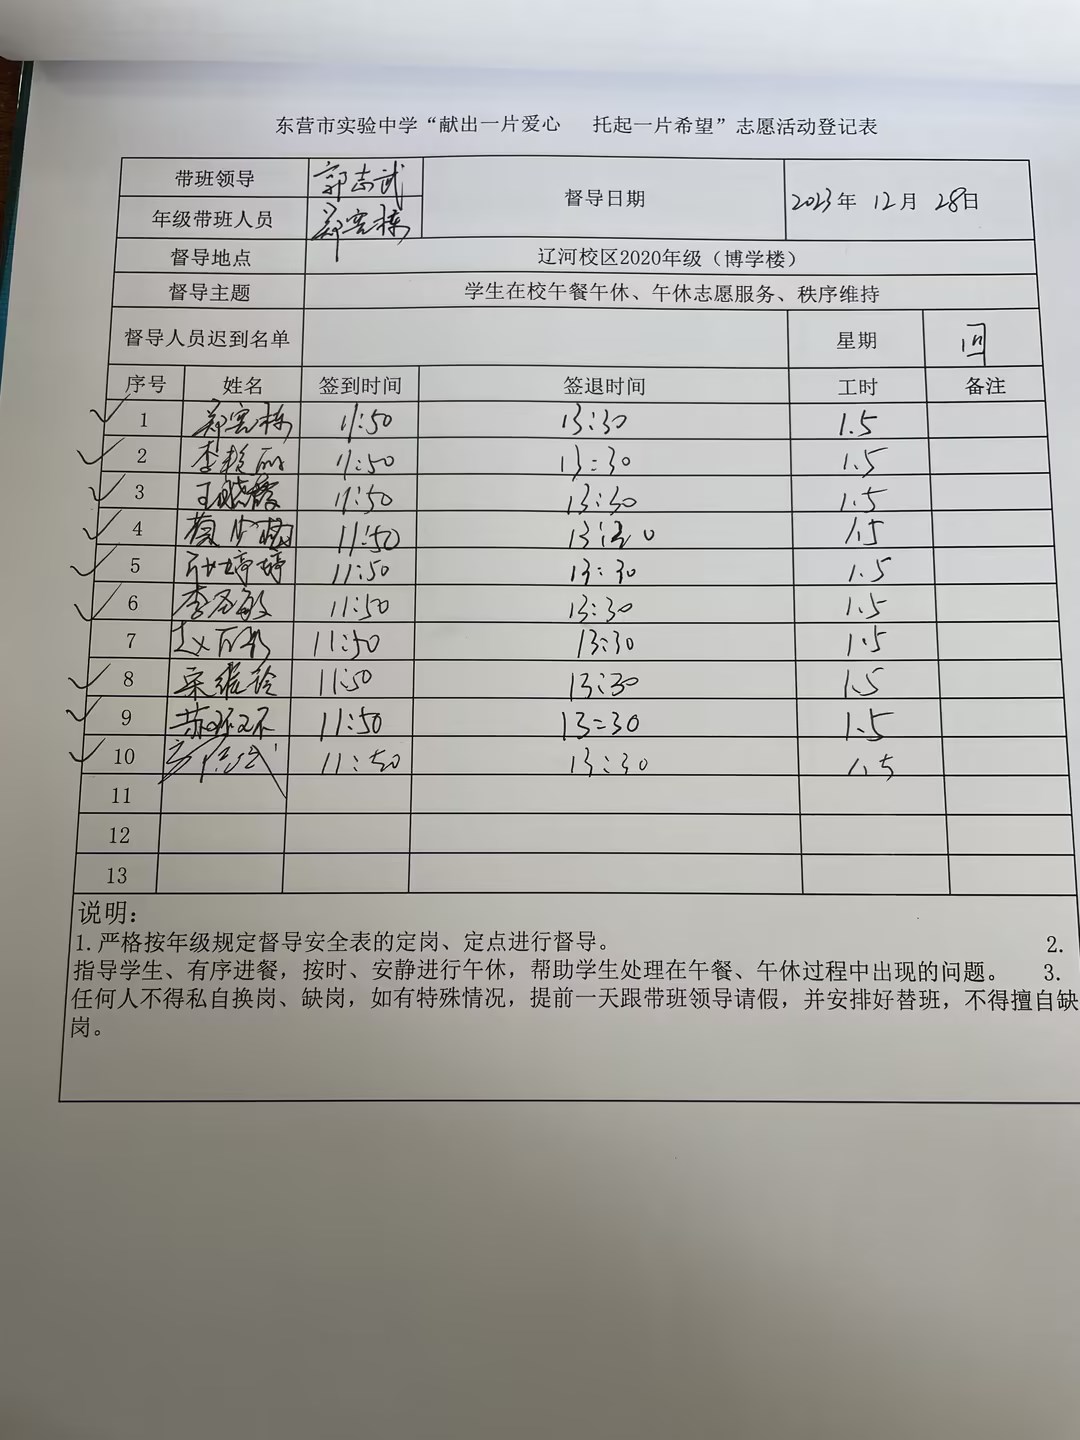 东营市实验中学“献出一片爱心 托起一片希望”志愿活动登记表
带班领导 郭志武 督导日期 2023年 12月 28日
年级带班人员 郑宪栋
督导地点 辽河校区2020年级（博学楼）
督导主题 学生在校午餐午休、午休志愿服务、秩序维持
督导人员迟到名单 星期 四
序号 姓名 签到时间 签退时间 工时 备注
1 郑宪栋 11:50 13:30 1.5
2 李艳丽 11:50 13:30 1.5
3 王晓霞 11:50 13:30 1.5
4 11:50 13:30 1.5
5 婷婷 11:50 13:30 1.5
6 李敏 11:50 13:30 1.5
7 赵 11:50 13:30 1.5
8 11:50 13:30 1.5
9 11:50 13:30 1.5
10 11:50 13:30 1.5
11
12
13
说明：
1.严格按年级规定督导安全表的定岗、定点进行督导。 2.
指导学生、有序进餐，按时、安静进行午休，帮助学生处理在午餐、午休过程中出现的问题。 3.
任何人不得私自换岗、缺岗，如有特殊情况，提前一天跟带班领导请假，并安排好替班，不得擅自缺
岗。